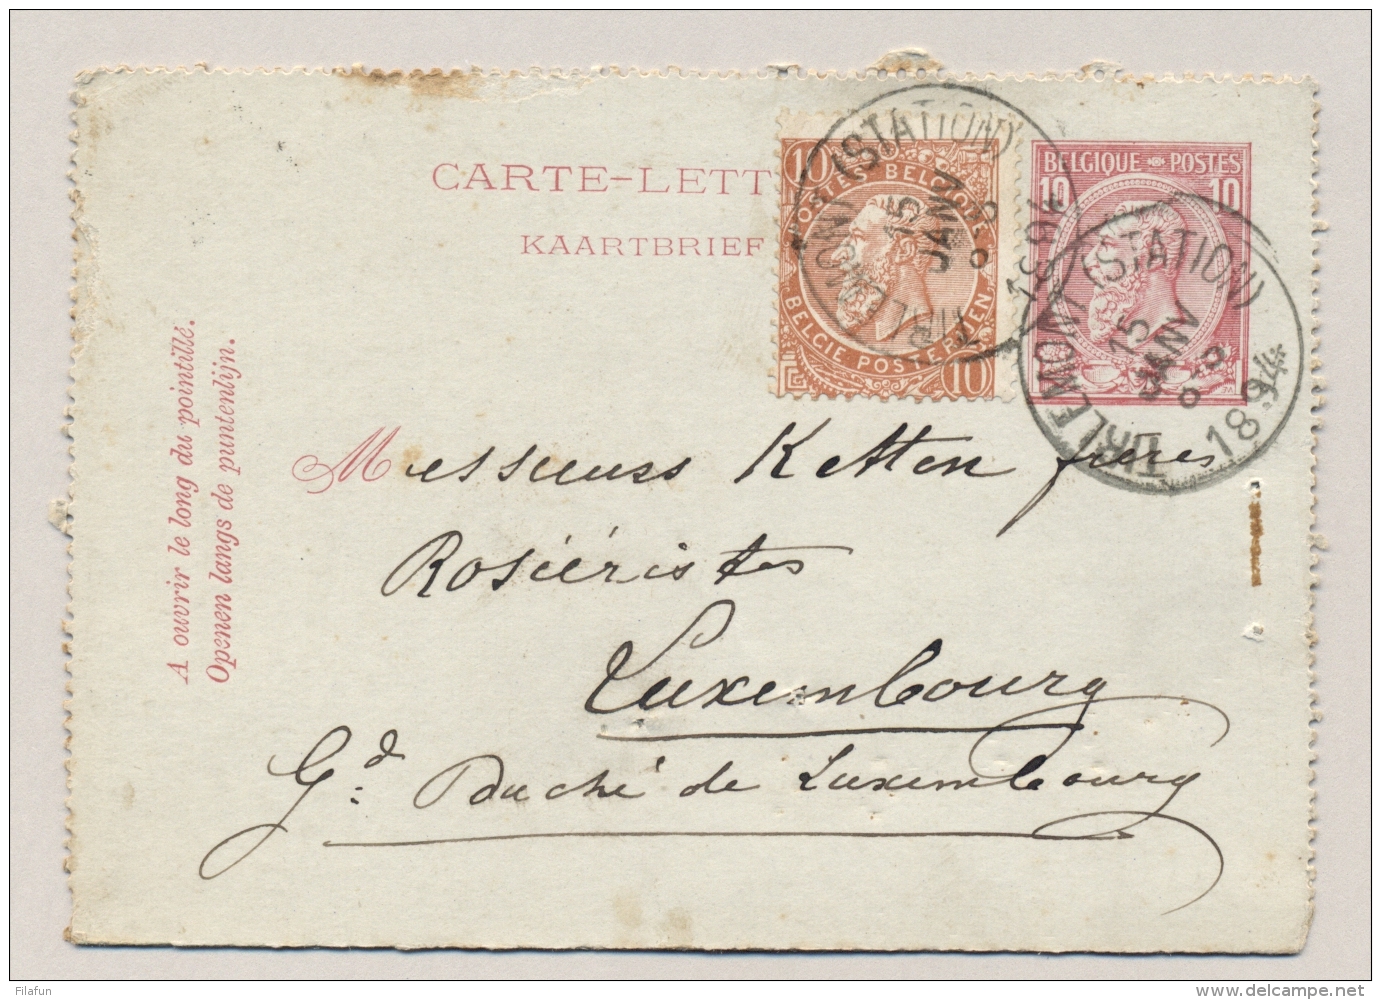 CARTE-LETT
KAARTBRIEF
10 10
POSTES BELGIQUE
BELGIE POSTERIJEN
10
BELGIQUE POSTES
10 10
TIRLEMONT (STATION)
15
JANV
1894
TIRLEMONT (STATION)
15
JANV
1894
A ouvrir le long du pointillé.
Openen langs de puntenlijn.
Messieurs Ketten frères
Rosiéristes
Luxembourg
Gd: Duché de Luxembourg
Filafun
www.delcampe.net